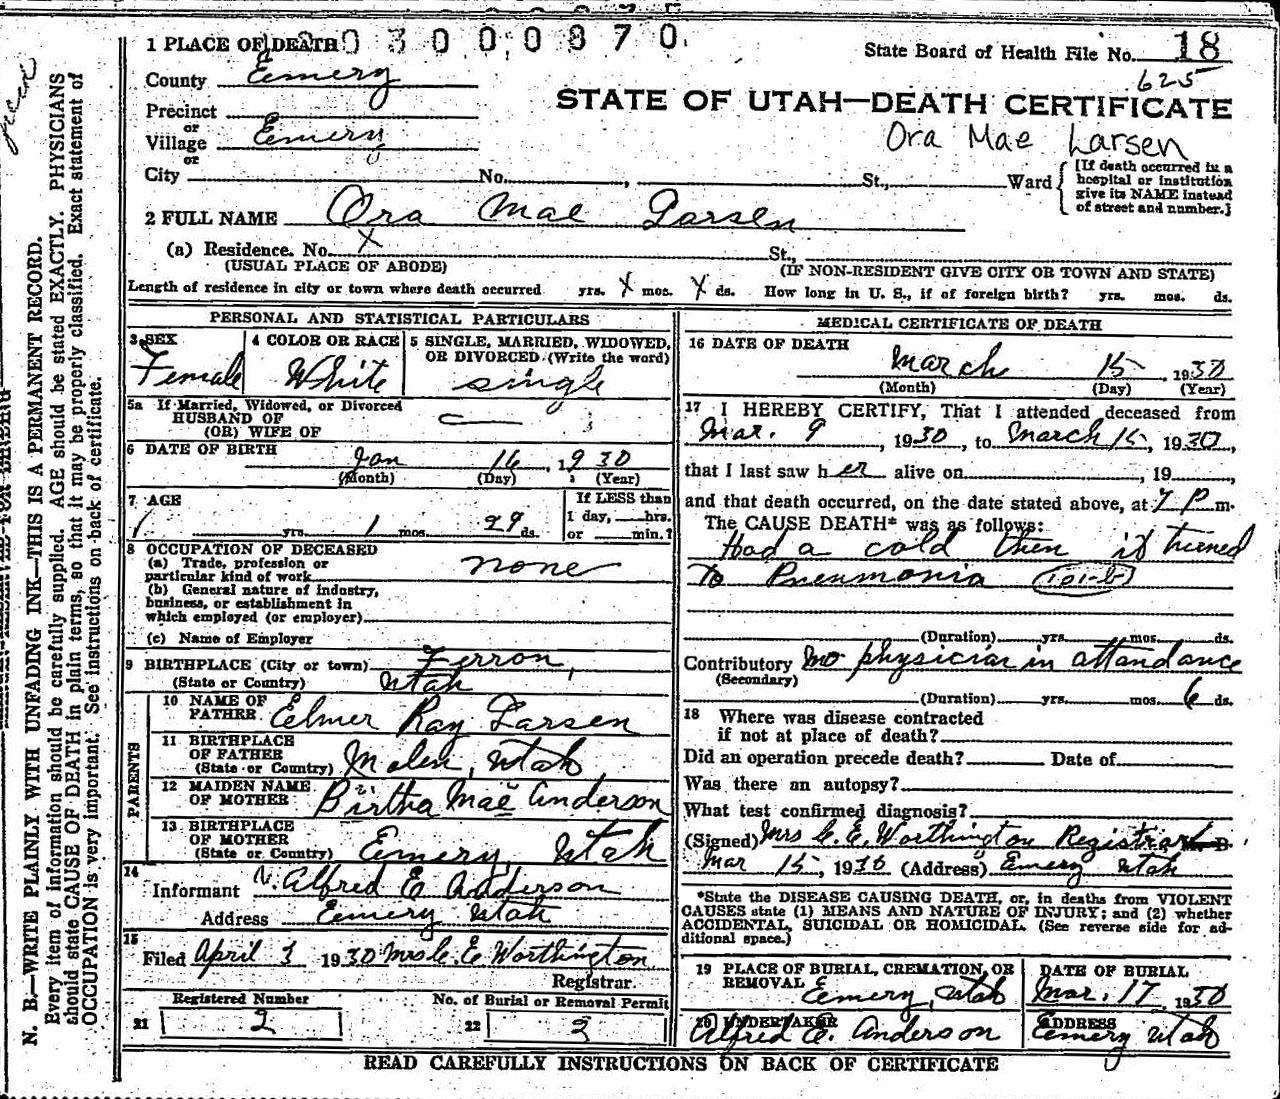 1 PLACE OF DEATH 0 3 0 0 0 8 7 0
State Board of Health File No. 18
625
County Emery
STATE OF UTAH—DEATH CERTIFICATE
Precinct
or
Village Emery
or
Ora Mae Larsen
City No. , St., Ward
[If death occurred in a hospital or institution give its NAME instead of street and number.]
2 FULL NAME Ora Mae Larsen
(a) Residence. No. X St.,
(USUAL PLACE OF ABODE) (IF NON-RESIDENT GIVE CITY OR TOWN AND STATE)
Length of residence in city or town where death occurred yrs. X mos. X ds. How long in U. S., if of foreign birth? yrs. mos. ds.
PERSONAL AND STATISTICAL PARTICULARS
3 SEX
Female
4 COLOR OR RACE
White
5 SINGLE, MARRIED, WIDOWED,
OR DIVORCED (Write the word)
single
5a If Married, Widowed, or Divorced
HUSBAND OF
(OR) WIFE OF
6 DATE OF BIRTH Jan 16, 1930
(Month) (Day) (Year)
7 AGE
yrs. 1 mos. 29 ds.
If LESS than
1 day, hrs.
or min.?
8 OCCUPATION OF DECEASED
(a) Trade, profession or
particular kind of work none
(b) General nature of industry,
business, or establishment in
which employed (or employer)
(c) Name of Employer
9 BIRTHPLACE (City or town) Ferron,
(State or Country) Utah
PARENTS
10 NAME OF
FATHER Elmer Ray Larsen
11 BIRTHPLACE
OF FATHER
(State or Country) Molen, Utah
12 MAIDEN NAME
OF MOTHER Birtha Mae Anderson
13 BIRTHPLACE
OF MOTHER
(State or Country) Emery, Utah
14
Informant Alfred E Anderson
Address Emery Utah
15
Filed April 1 1930 Mrs C. E Worthington
Registrar.
Registered Number
21 2
No. of Burial or Removal Permit
22 2
MEDICAL CERTIFICATE OF DEATH
16 DATE OF DEATH
March 15, 1930
(Month) (Day) (Year)
17 I HEREBY CERTIFY, That I attended deceased from
Mar. 9, 1930, to March 15, 1930,
that I last saw her alive on , 19 ,
and that death occurred, on the date stated above, at 7 P m.
The CAUSE DEATH* was as follows:
Had a cold then it turned
to Pneumonia 101-b
(Duration) yrs. mos. ds.
Contributory no physician in attendance
(Secondary)
(Duration) yrs. mos. 6 ds.
18 Where was disease contracted
if not at place of death?
Did an operation precede death? Date of
Was there an autopsy?
What test confirmed diagnosis?
(Signed) Mrs C. E. Worthington Registrar M. D.
Mar 15, 1930 (Address) Emery Utah
*State the DISEASE CAUSING DEATH, or, in deaths from VIOLENT
CAUSES state (1) MEANS AND NATURE OF INJURY; and (2) whether
ACCIDENTAL, SUICIDAL OR HOMICIDAL. (See reverse side for ad-
ditional space.)
19 PLACE OF BURIAL, CREMATION, OR
REMOVAL Emery, Utah
DATE OF BURIAL
Mar. 17, 1930
20 UNDERTAKER
Alfred E. Anderson
ADDRESS
Emery Utah
READ CAREFULLY INSTRUCTIONS ON BACK OF CERTIFICATE
N. B.—WRITE PLAINLY WITH UNFADING INK—THIS IS A PERMANENT RECORD.
Every item of information should be carefully supplied. AGE should be stated EXACTLY. PHYSICIANS
should state CAUSE OF DEATH in plain terms, so that it may be properly classified. Exact statement of
OCCUPATION is very important. See instructions on back of certificate.